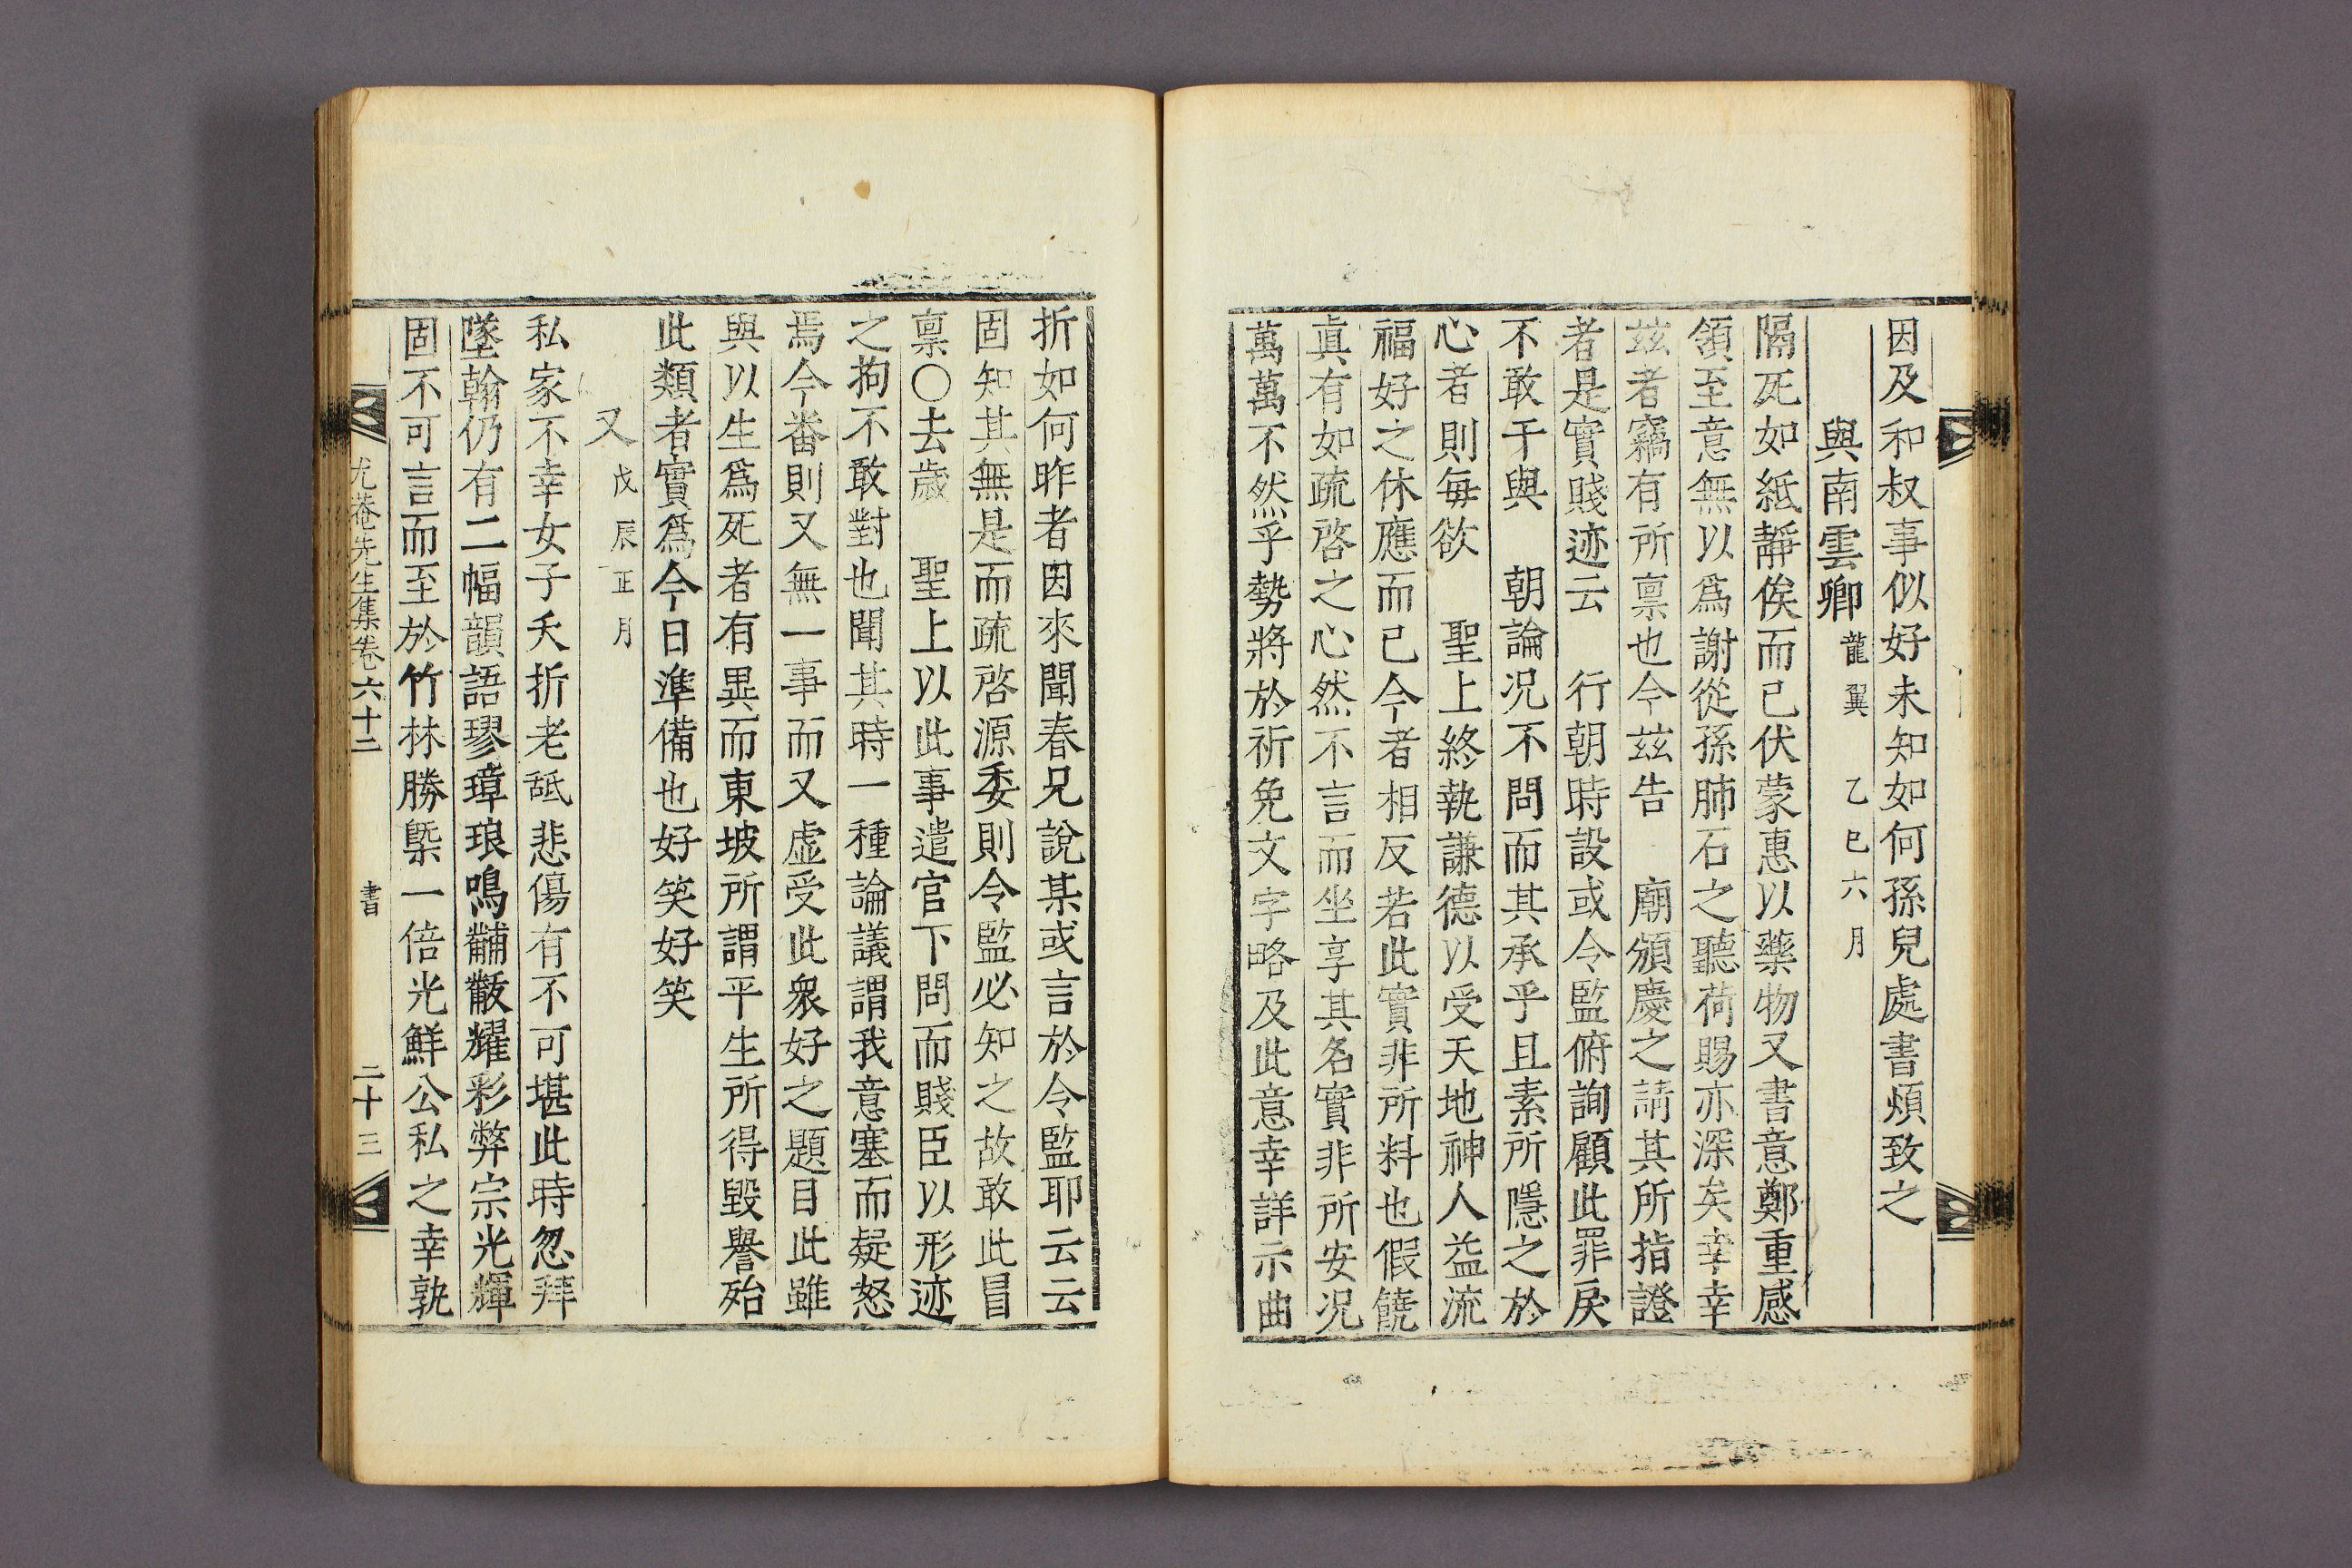 因及和叔事似好未知如何孫兒處書煩致之
與南雲卿龍翼 乙巳六月
隔死如紙靜俟而已伏蒙惠以藥物又書意鄭重感
領至意無以爲謝從孫肺石之聽荷賜亦深矣幸幸
玆者竊有所禀也今玆告 廟頒慶之請其所指證
者是實賤迹云 行朝時設或令監俯詢顧此罪戾
不敢干與 朝論况不問而其承乎且素所隱之於
心者則每欲 聖上終執謙德以受天地神人益流
福好之休應而已今者相反若此實非所料也假饒
眞有如疏啓之心然不言而坐享其名實非所安况
萬萬不然乎勢將於祈免文字略及此意幸詳示曲
折如何昨者因來聞春兄說某或言於令監耶云云
固知其無是而疏啓源委則令監必知之故敢此冒
禀○去歲 聖上以此事遣官下問而賤臣以形迹
之拘不敢對也聞其時一種論議謂我意塞而疑怒
焉今番則又無一事而又虛受此衆好之題目此雖
與以生爲死者有異而東坡所謂平生所得毀譽殆
此類者實爲今日準備也好笑好笑
又戊辰正月
私家不幸女子夭折老舐悲傷有不可堪此時忽拜
墜翰仍有二幅韻語璆璋琅鳴黼黻耀彩弊宗光輝
固不可言而至於竹林勝槩一倍光鮮公私之幸孰
尤菴先生集卷六十二 書 二十三